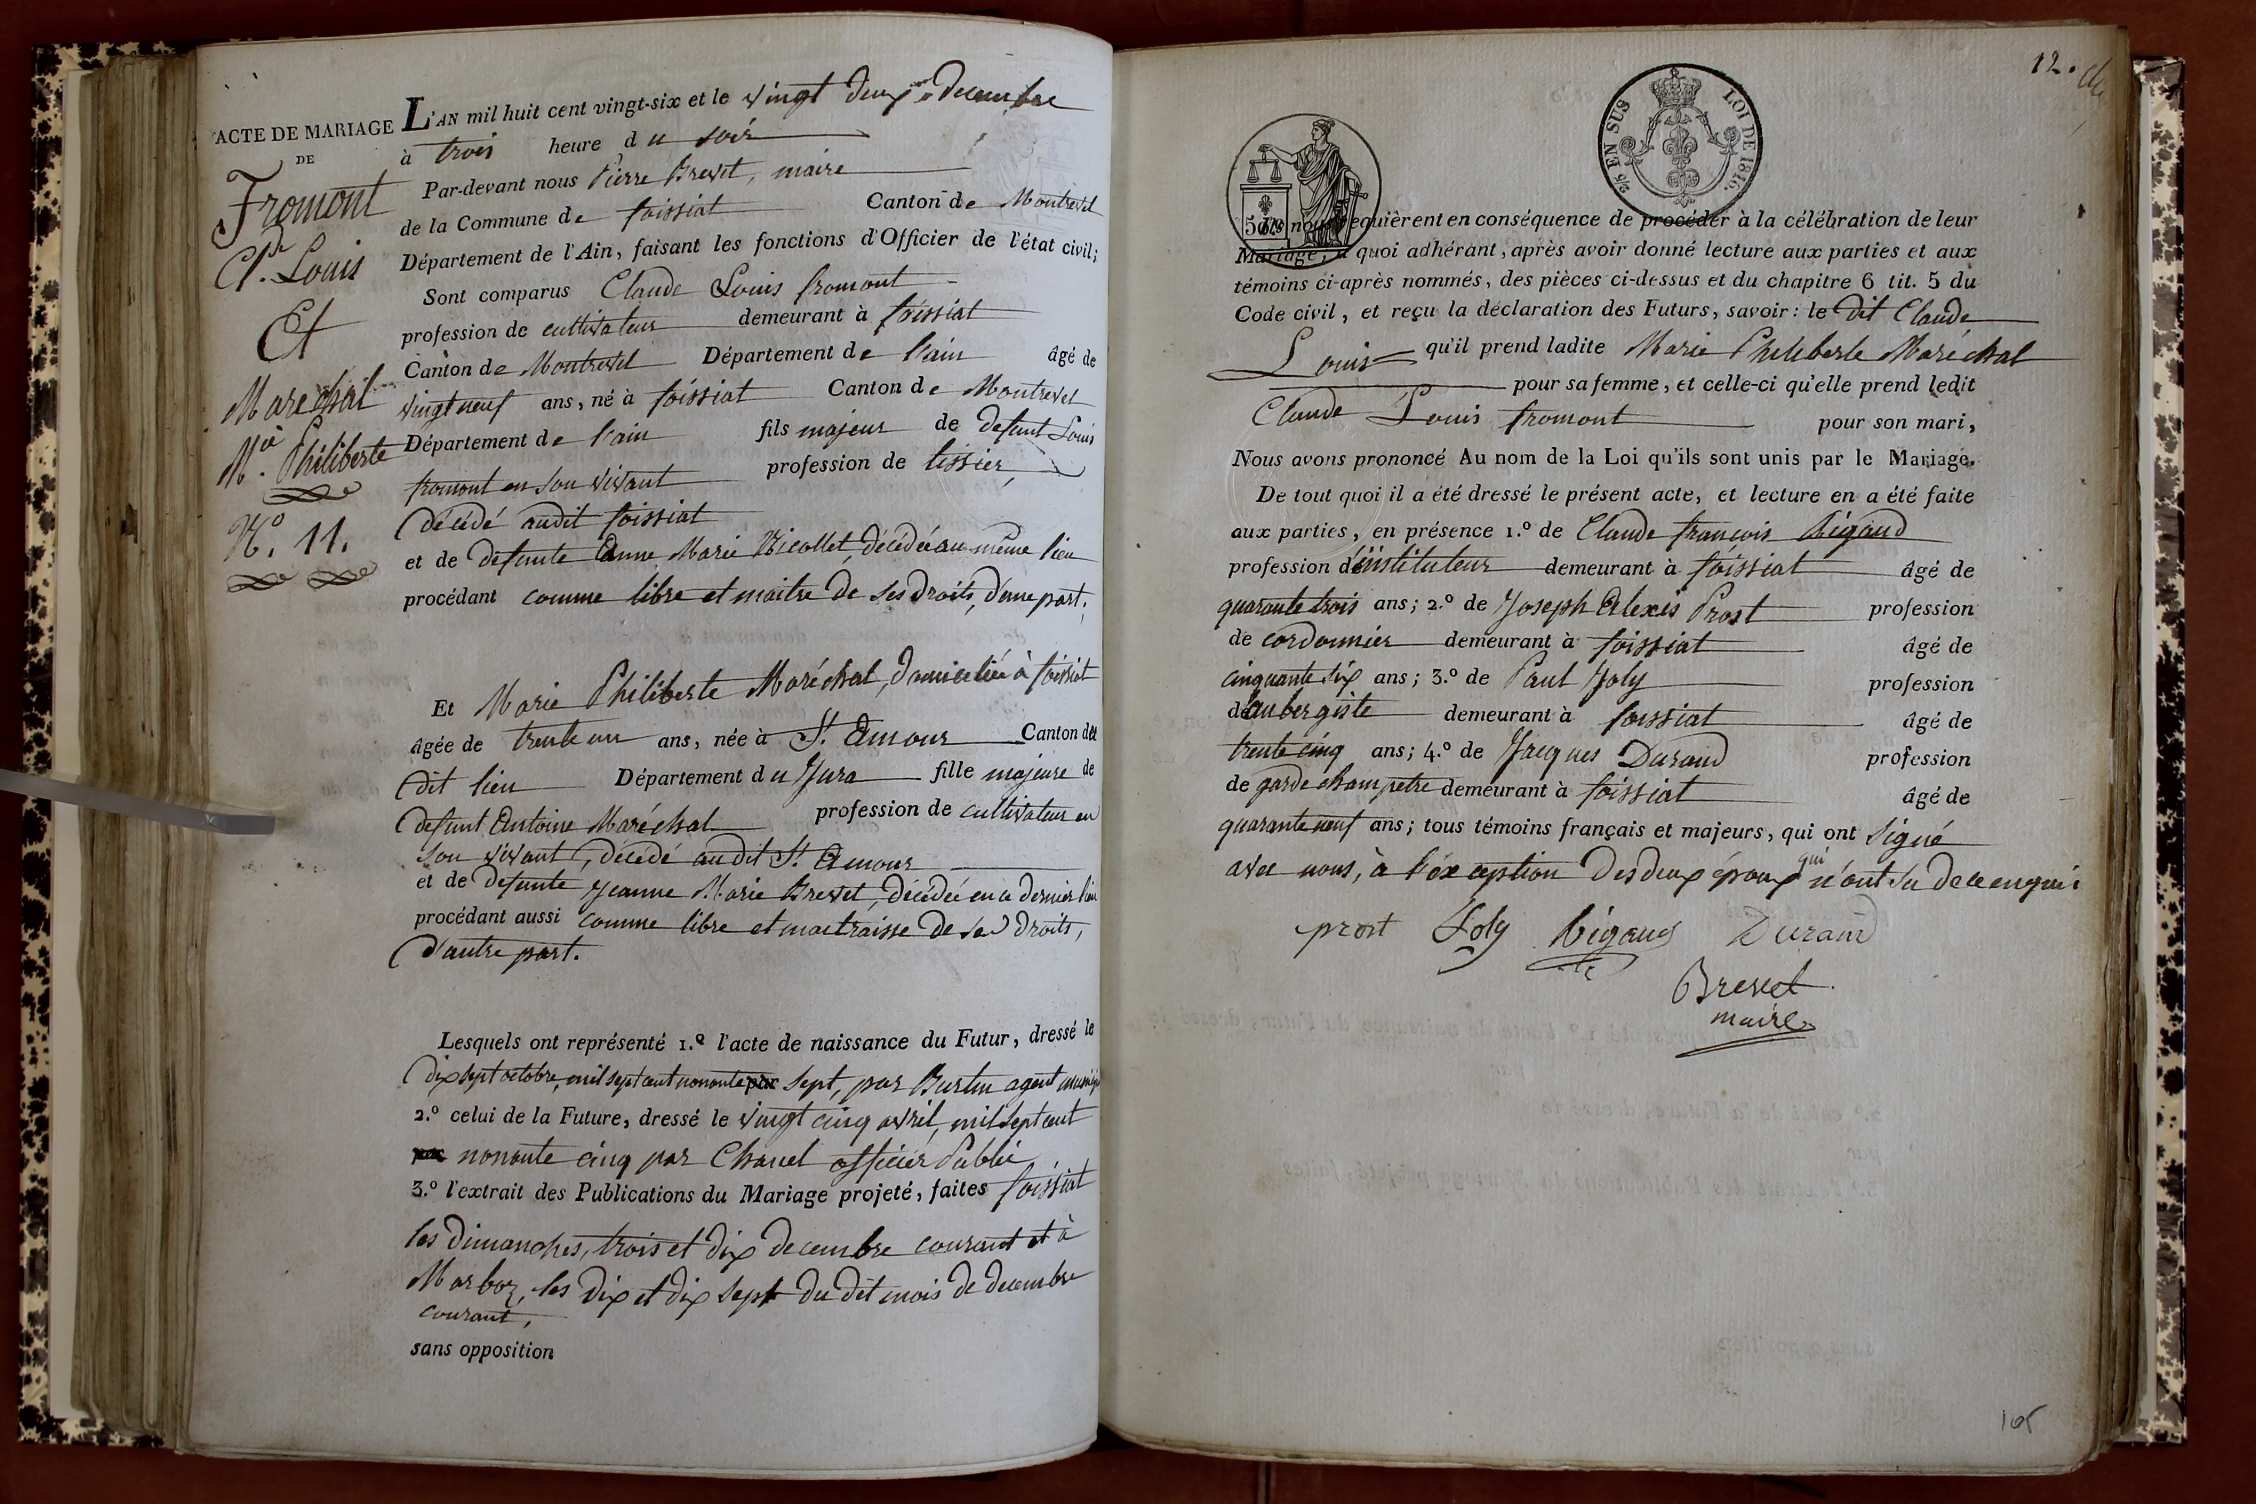 ACTE DE MARIAGE
DE
Fromont
Cl.de Louis
Et
Maréchal
M.ie Philiberte
N.o 11.
L'AN mil huit cent vingt-six et le vingt deux decembre
à trois heure du soir
Par-devant nous Pierre Brevet, maire
de la Commune de foissiat Canton de Montrevel
Département de l'Ain, faisant les fonctions d'Officier de l'état civil;
Sont comparus Claude Louis fromont
profession de cultivateur demeurant à foissiat
Canton de Montrevel Département de l'ain âgé de
vingt neuf ans, né à foissiat Canton de Montrevel
Département de l'ain fils majeur de defunt Louis
fromont en son vivant profession de tissier,
décédé audit foissiat
et de defunte Anne Marie Nicollet, décédée au même lieu
procédant comme libre et maitre de ses droits, d'une part;
Et Marie Philiberte Maréchal, domiciliée à foissiat
âgée de trente un ans, née à St. Amour Canton du
dit lieu Département du Jura fille majeure de
defunt Antoine Maréchal profession de cultivateur en
son vivant, décédé audit St. Amour
et de defunte Jeanne Marie Brevet, décédée en ce dernier lieu
procédant aussi comme libre et maitraisse de ses droits,
d'autre part.
Lesquels ont représenté 1.o l'acte de naissance du Futur, dressé le
dix sept octobre, mil sept cent nonante par sept, par Burtin agent munic
2.o celui de la Future, dressé le vingt cinq avril, mil sept cent
par nonante cinq par Chanel officier Public
3.o l'extrait des Publications du Mariage projeté, faites foissiat
les dimanches, trois et dix decembre courant et à
Marboz, les dix et dix sept du dit mois de decembre
courant,
sans opposition
12.
2/5 EN SUS LOI DE 1816.
Ils nous requièrent en conséquence de procéder à la célébration de leur
Mariage; à quoi adhérant, après avoir donné lecture aux parties et aux
témoins ci-après nommés, des pièces ci-dessus et du chapitre 6 tit. 5 du
Code civil, et reçu la déclaration des Futurs, savoir: le dit Claude
Louis qu'il prend ladite Marie Philiberte Maréchal
pour sa femme, et celle-ci qu'elle prend ledit
Claude Louis fromont pour son mari,
Nous avons prononcé Au nom de la Loi qu'ils sont unis par le Mariage.
De tout quoi il a été dressé le présent acte, et lecture en a été faite
aux parties, en présence 1.o de Claude francois Bigaud
profession d'instituteur demeurant à foissiat âgé de
quarante trois ans; 2.o de Joseph Alexis Prost profession
de cordonnier demeurant à foissiat âgé de
cinquante six ans; 3.o de Paul Joly profession
de aubergiste demeurant à foissiat âgé de
trente cinq ans; 4.o de Jacques Durand profession
de garde champetre demeurant à foissiat âgé de
quarante neuf ans; tous témoins français et majeurs, qui ont signé
avec nous, à l'exception des deux époux qui n'ont su de ce enquis
prost Joly bigaud Durand
Brevet
maire
105